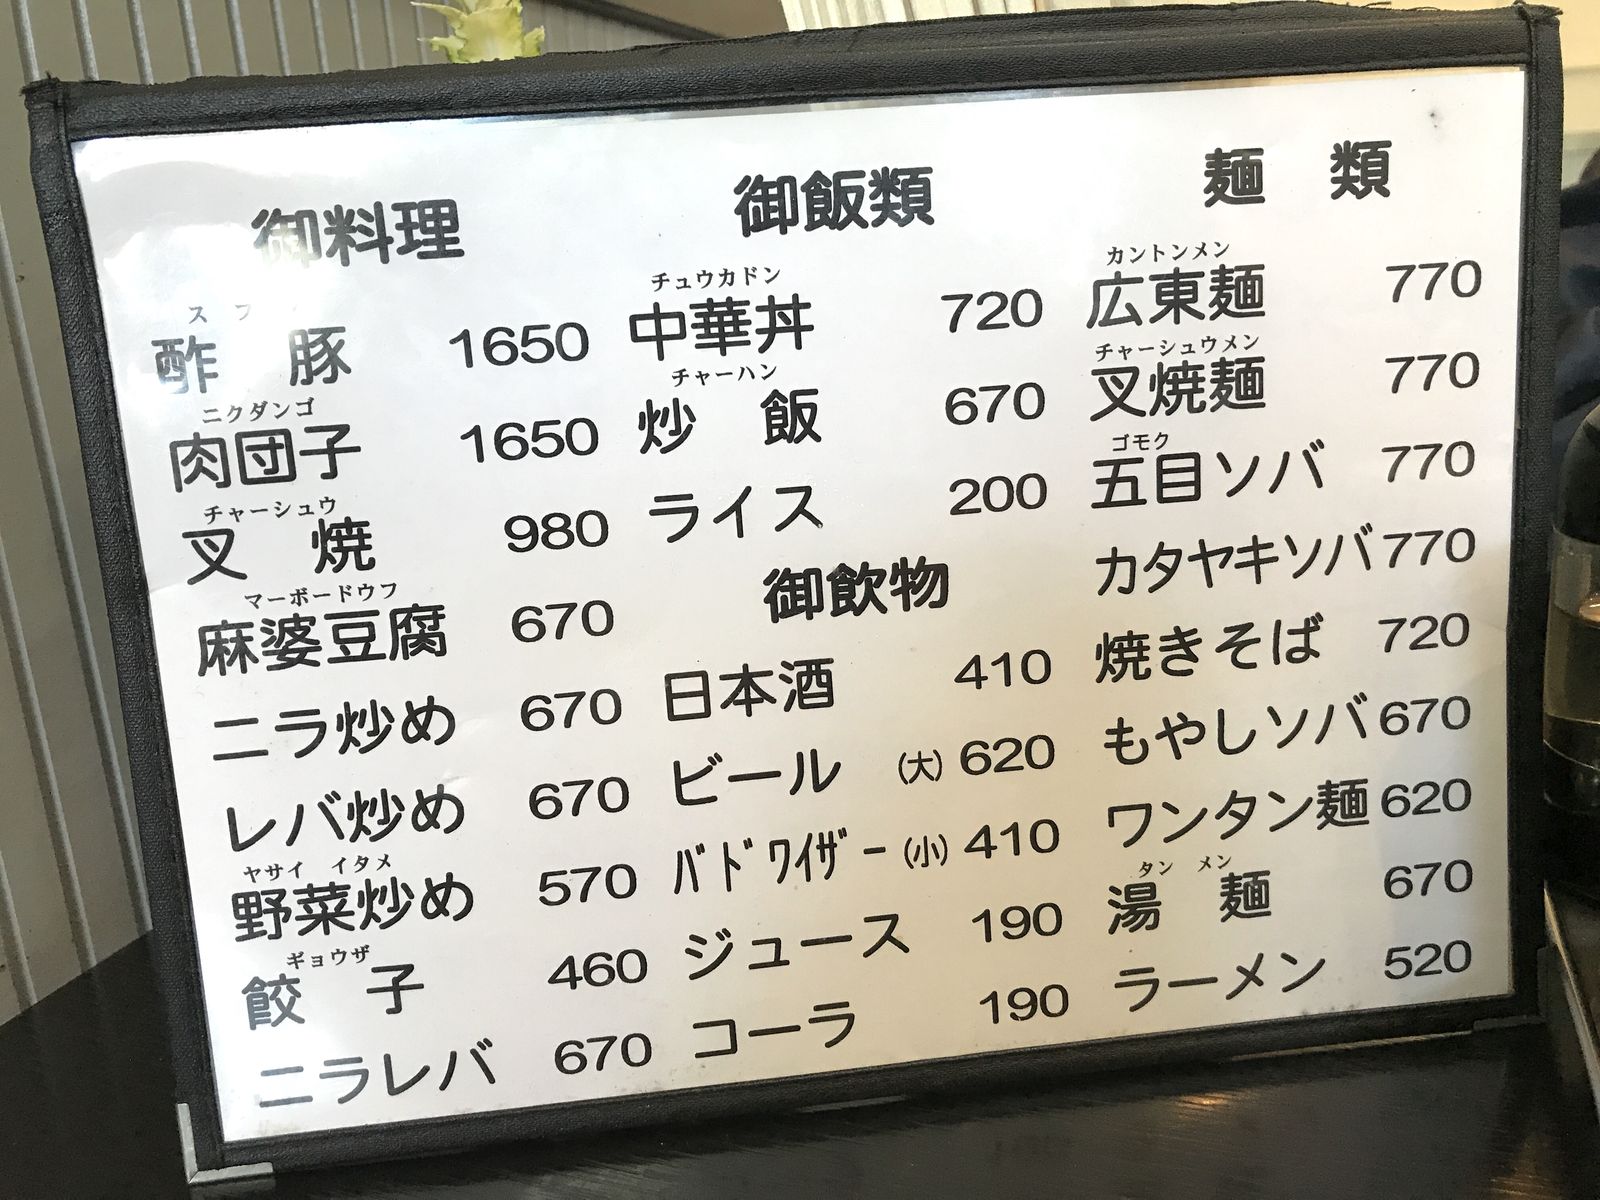 御料理
スブタ
酢豚 1650
ニクダンゴ
肉団子 1650
チャーシュウ
叉焼 980
マーボードウフ
麻婆豆腐 670
ニラ炒め 670
レバ炒め 670
ヤサイ イタメ
野菜炒め 570
ギョウザ
餃子 460
ニラレバ 670
御飯類
チュウカドン
中華丼 720
チャーハン
炒飯 670
ライス 200
御飲物
日本酒 410
ビール (大) 620
バドワイザー (小) 410
ジュース 190
コーラ 190
麺類
カントンメン
広東麺 770
チャーシュウメン
叉焼麺 770
ゴモク
五目ソバ 770
カタヤキソバ 770
焼きそば 720
もやしソバ 670
ワンタン麺 620
タン メン
湯麺 670
ラーメン 520